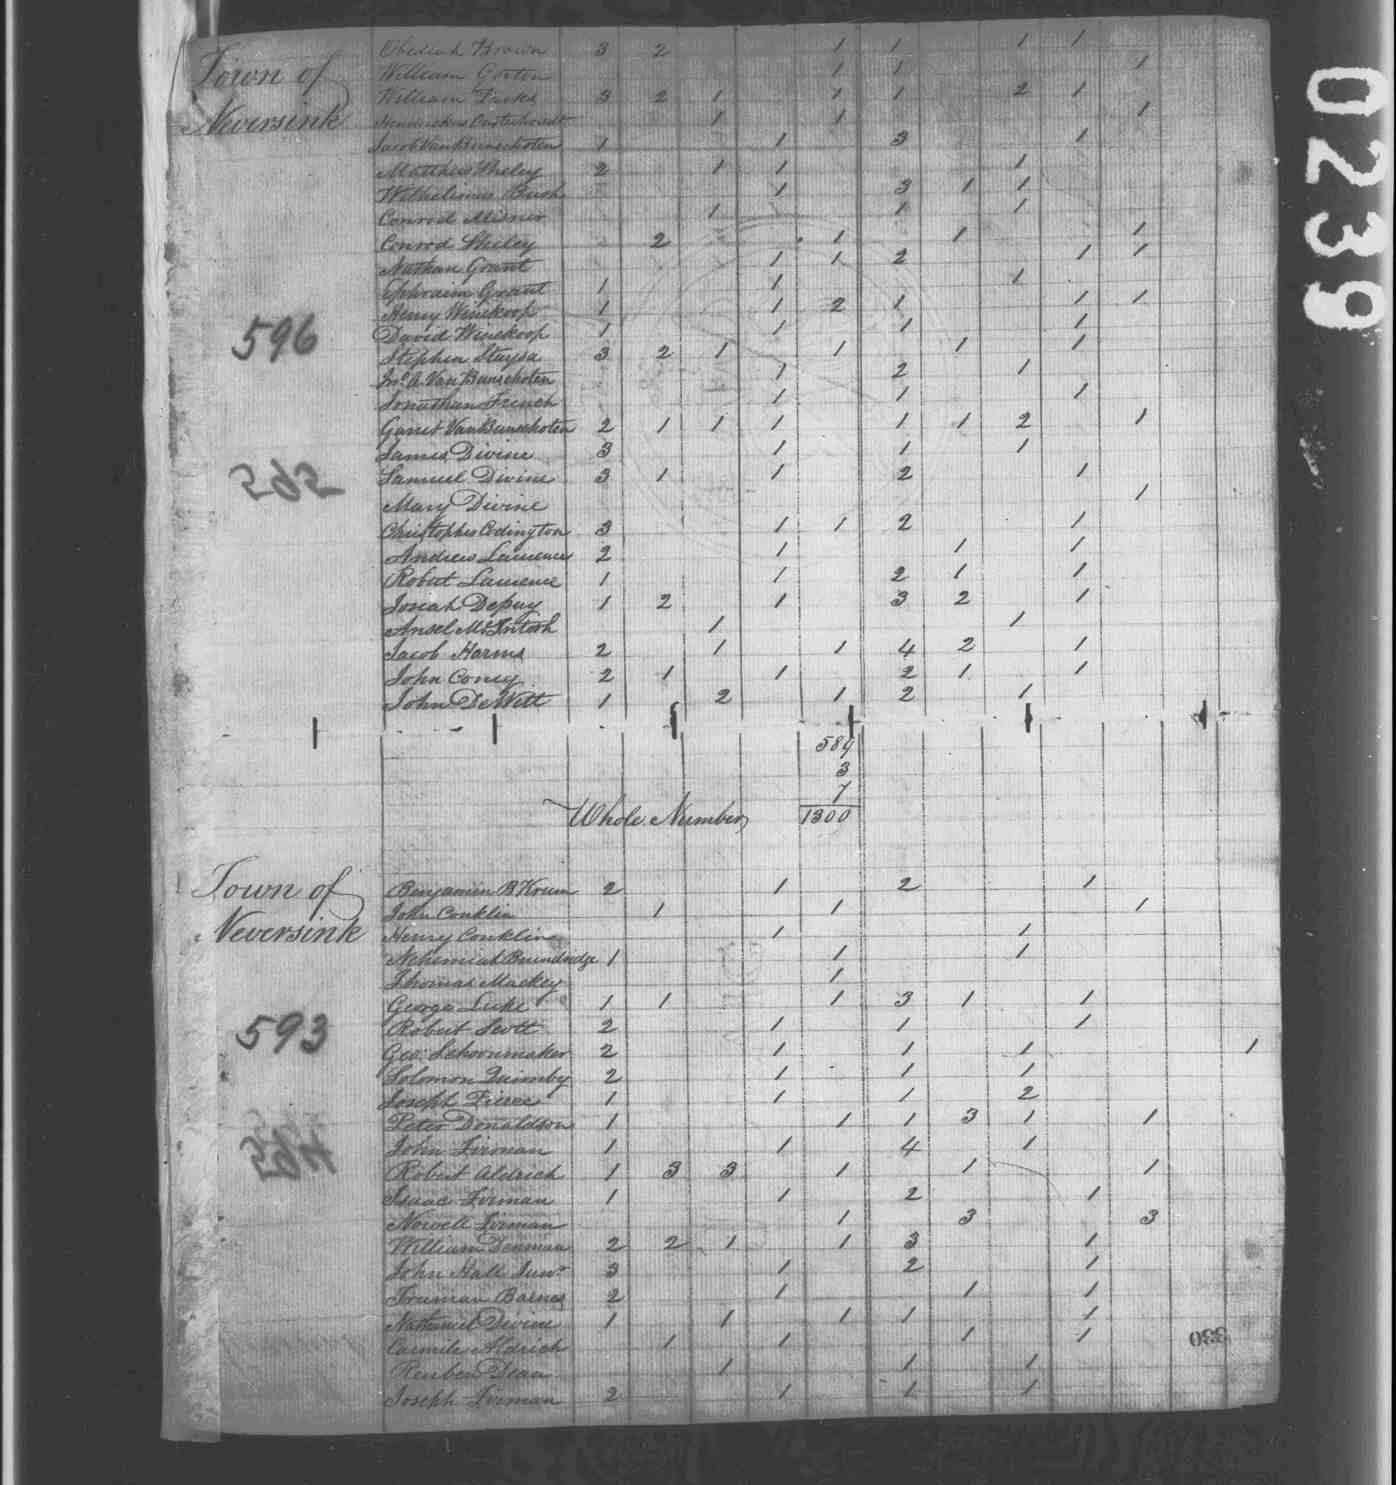 0239
Town of Neversink
596
565
Obediah Brown 3 2 1 1 1 1
William Gorton 1 1 1
William Parks 3 2 1 1 1 2 1
Hendrickus Oosterhoudt 1 1 1
Jacob Van Bunschoten 1 1 3 1
Matthew Sheley 2 1 1 1
Wilhelimus Bush 1 3 1 1
Conrod Misner 1 1 1
Conrod Sheley 2 1 1 1
Nathan Grant 1 1 2 1 1
Ephraim Grant 1 1 1
Henry Winekoop 1 1 2 1 1 1
David Winekoop 1 1 1 1
Stephen 3 2 1 1 1 1
Jno. A. Van Bunschoten 1 2 1
Jonathan French 1 1 1
Garret Van Bunschoten 2 1 1 1 1 1 2 1
James Divine 3 1 1 1
Samuel Divine 3 1 1 2 1
Mary Divine 1
Christopher Codington 3 1 1 2 1
Andrew Lawrence 2 1 1 1
Robert Lawrence 1 1 2 1 1
Josiah Depuy 1 2 1 3 2 1
Ansel McIntosh 1 1
Jacob Harms 2 1 1 4 2 1
John Coney 2 1 1 2 1 1
John DeWitt 1 2 1 2 1
589
3
7
Whole Number 1300
Town of Neversink
593
564
Benjamin B Krum 2 1 2 1
John Conklin 1 1 1
Henry Conklin 1 1
Nehemiah Brundridge 1 1 1
Thomas Mackey 1
George Luke 1 1 1 3 1 1
Robert Scott 2 1 1 1
Geo. Schoonmaker 2 1 1 1 1
Solomon Quimby 2 1 1 1
Joseph Pierce 1 1 1 2
Peter Donaldson 1 1 1 3 1 1
John Firman 1 1 4 1
Robert Aldrich 1 3 3 1 1 1
Isaac Firman 1 1 2 1
Nowell Firman 1 3 3
William Denman 2 2 1 1 3 1
John Hall Junr. 3 1 2 1
Truman Barnes 2 1 1 1
Nathaniel Divine 1 1 1 1 1
Aldrich 1 1 1 1
Reuben Dean 1 1 1
Joseph Firman 2 1 1 1
330